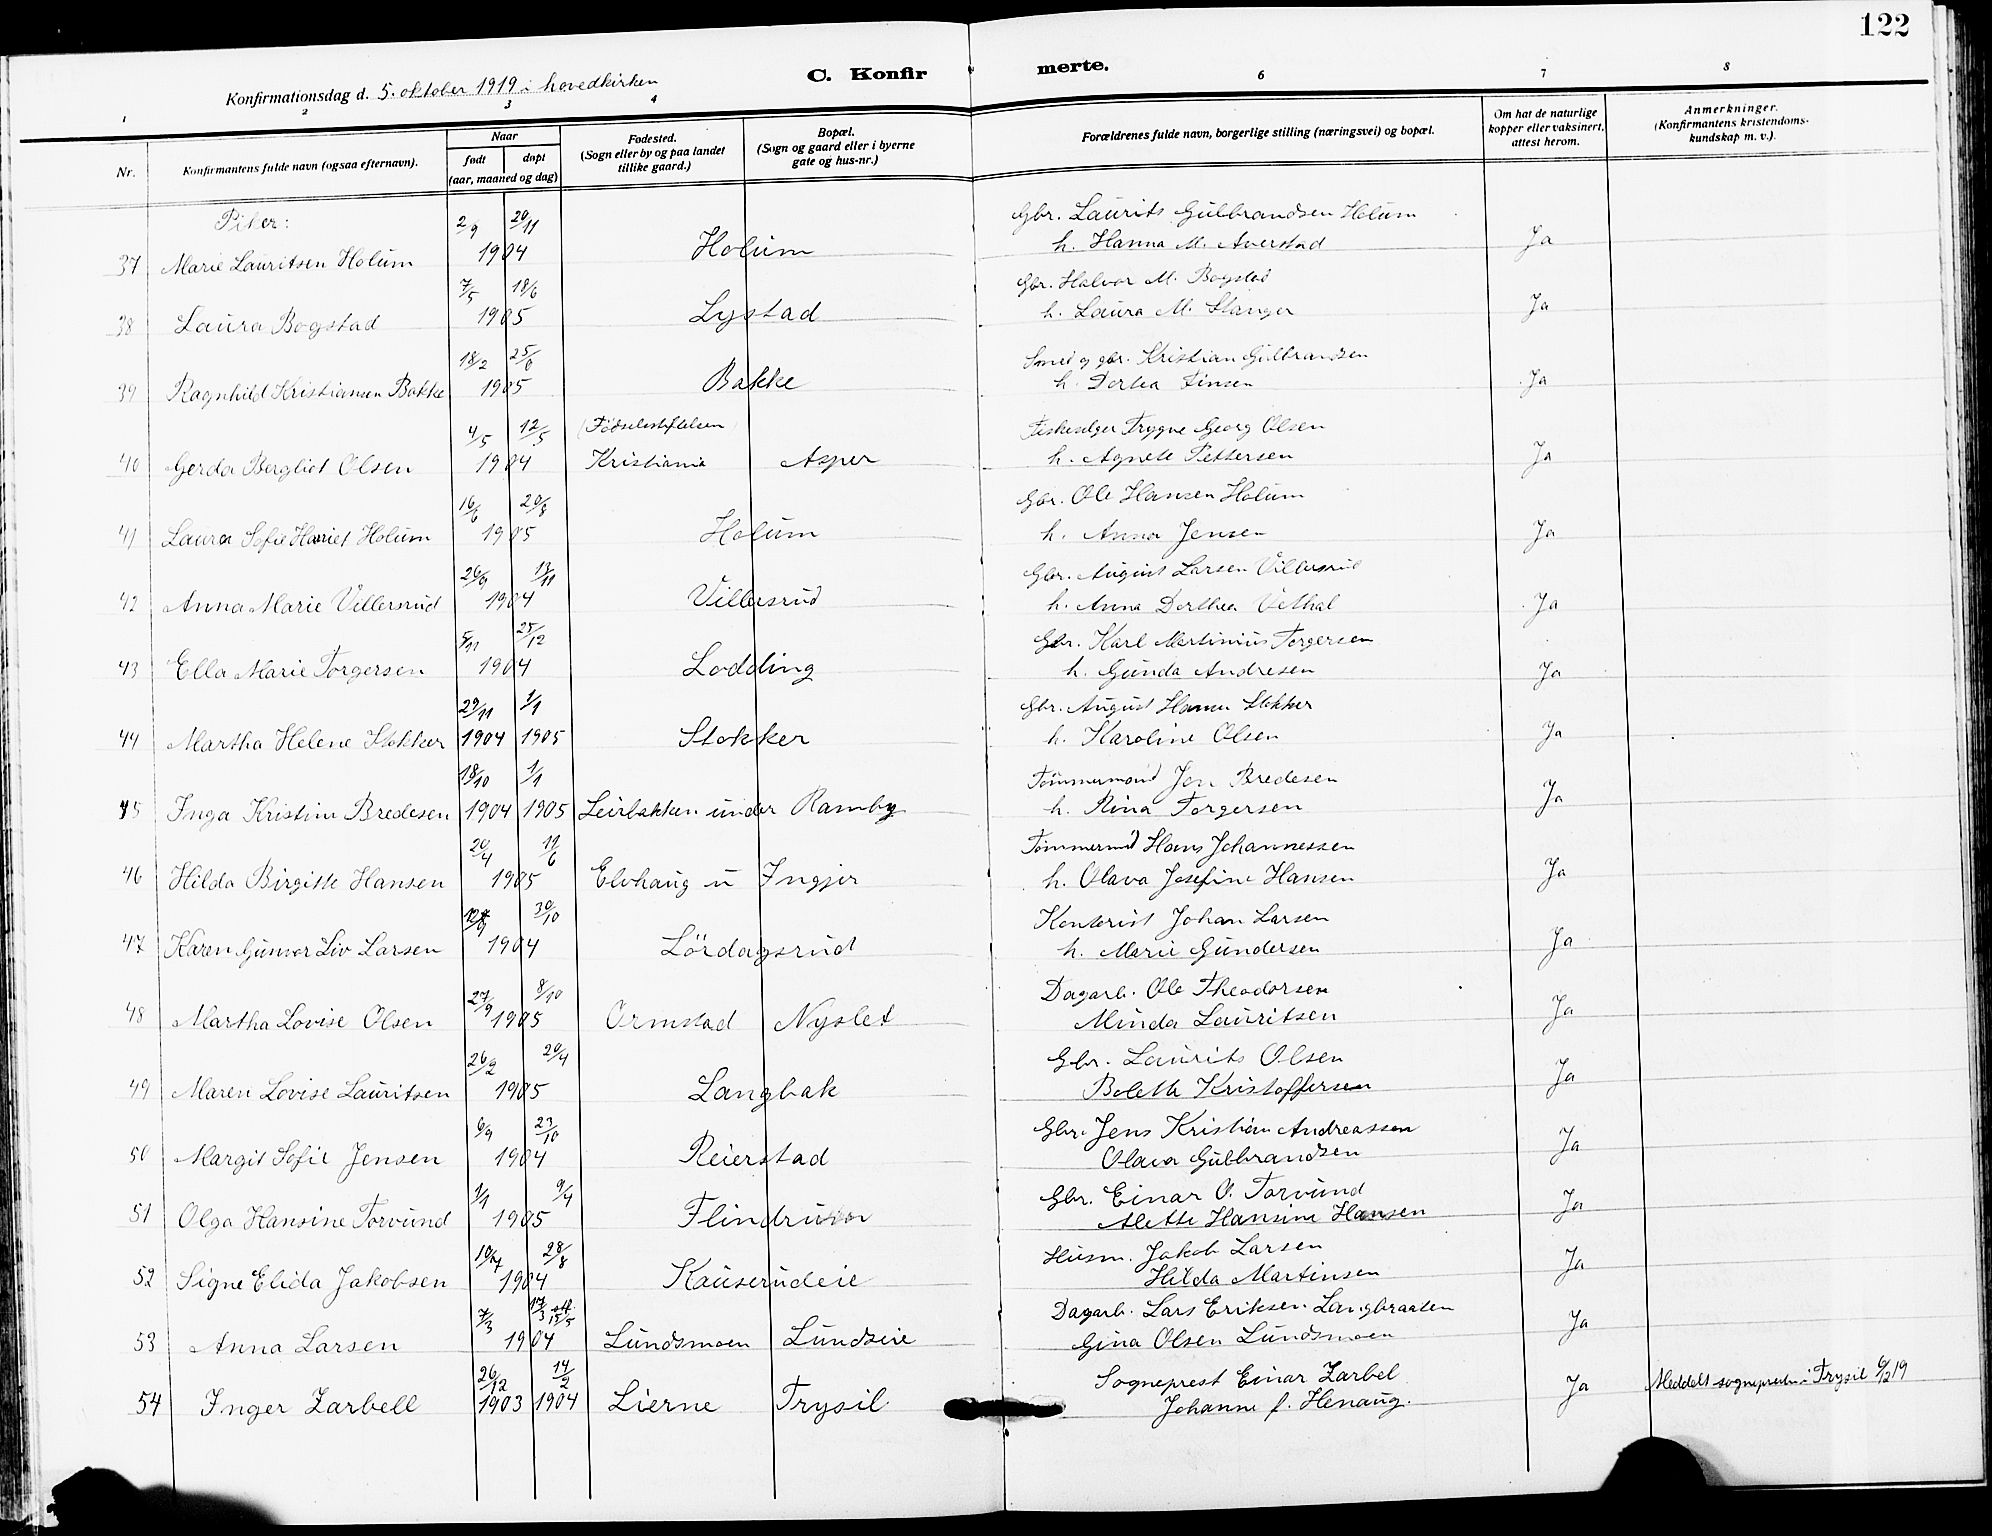 122
C. Konfirmerte.
Konfirmationsdag d. 5. oktober 1919 i hovedkirken
1 2 3 4 6 7 8
Nr.
Konfirmantens fulde navn (ogsaa efternavn).
Naar
født døpt
(aar, maaned og dag)
Fødested.
(Sogn eller by og paa landet
tillike gaard.)
Bopæl.
(Sogn og gaard eller i byerne
gate og hus-nr.)
Forældrenes fulde navn, borgerlige stilling (næringsvei) og bopæl.
Om hat de naturlige
kopper eller vaksinert,
attest herom.
Anmerkninger.
(Konfirmantens kristendoms-
kundskap m. v.).
Piker: 2/9 20/11 Gbr. Laurits Gulbrandsen Holum
37 Marie Lauritsen Holum 1904 Holum h. Hanna M. Averstad Ja
7/5 18/6 Gbr. Halvor M. Bogstad
38 Laura Bogstad 1905 Lystad h. Laura M. Stanger Ja
18/2 25/6 Smed og gbr. Kristian Gulbrandsen
39 Ragnhild Kristiansen Bakke 1905 Bakke h. Dortea Finsen Ja
4/5 12/5 (Fødselsstiftelsen) Fiskeselger Trygve Georg Olsen
40 Gerda Bergliot Olsen 1904 Kristiania Asper h. Agnete Pettersen Ja
16/6 20/8 Gbr. Ole Hansen Holum
41 Laura Sofie Harriet Holum 1905 Holum h. Anna Jensen Ja
26/9 13/11 Gbr. August Larsen Villersrud
42 Anna Marie Villersrud 1904 Villersrud h. Anna Dorthea Vethal Ja
5/11 25/12 Gbr. Karl Martinius Torgersen
43 Ella Marie Torgersen 1904 Lodding h. Gunda Andresen Ja
29/11 1/1 Gbr. August Hansen Stokker
44 Martha Helene Stokker 1904 1905 Stokker h. Karoline Olsen Ja
18/10 1/1 Tømmermand Jon Bredesen
45 Inga Kristine Bredesen 1904 1905 Leirbakken under Ramby h. Rina Torgersen Ja
20/4 11/6 Tømmermd Hans Johannessen
46 Hilda Birgitte Hansen 1905 Elvhaug u Ingjer h. Olava Josefine Hansen Ja
30/10 Kontorist Johan Larsen
47 Karen Gunvor Liv Larsen 1904 Lördagsrud h. Marie Gundersen Ja
27/9 8/10 Dagarb. Ole Theodorsen
48 Martha Lovise Olsen 1905 Ormstad Nyslet Minda Lauritsen Ja
26/2 20/4 Gbr. Laurits Olsen
49 Maren Lovise Lauritsen 1905 Langbak Bolette Kristoffersen Ja
6/9 23/10 Gbr. Jens Kristian Andreassen
50 Margit Sofie Jensen 1904 Reierstad Olava Gulbrandsen Ja
1/1 9/4 Gbr. Einar O. Torvund
51 Olga Hansine Torvund 1905 Alette Hansine Hansen Ja
28/8 Husm. Jakob Larsen
52 Signe Elida Jakobsen 1904 Kauserudeie Hilda Martinsen Ja
7/3 17/3 stf. 15/5 Dagarb. Lars Eriksen Langbraaten
53 Anna Larsen 1904 Lundsmoen Lundseie Gina Olsen Lundsmoen Ja
26/12 14/2 Sogneprest Einar Zarbel
54 Inger Zarbell 1903 1904 Lierne Trysil Johanne f. Henaug. Ja Meddelt sognepresten i Trysil